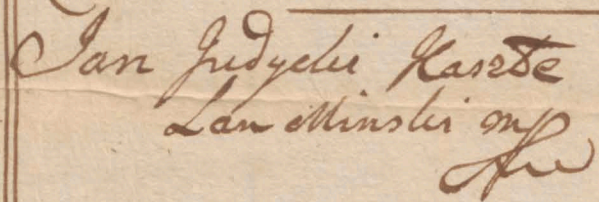 Jan Judycki Kaszte
Lan Minski mp